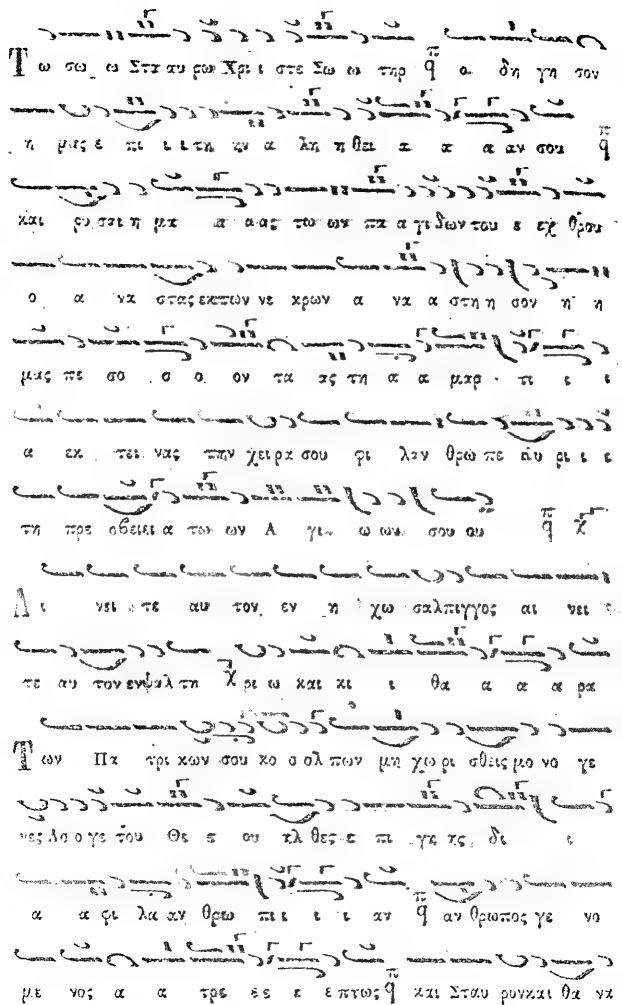 Τω σω ω Στα αυ ρω Χρι ι στε Σω ω τηρ ο δη γη σον
η μας ε πι ι ι τη ην α λη η θει α α α αν σου
και ρυ σαι η μα α α ας τω ων πα α γι δων του ε εχ θρου
ο α να στας εκ των νε κρων α να α στη η σον η η
μας πε σο ο σ ο ον τα ας τη α α μαρ τι ι ι
α εκ τει νας την χει ρα σου φι λαν θρω πε Κυ ρι ι ε
τη πρε σβει ει α των ων Α γι ω ων σου ου
Αι νει τε αυ τον εν η χω σαλπιγγος αι νει
τε αυ τον εν ψαλ τη ρι ω και κι ι θα α α α ρα
Των Πα τρι κων σου κο ο ολ πων μη χω ρι σθεις μο νο γε
νες Λο ο γε του Θε ε ου ηλ θες ε πι γης δι ι
α α φι λα αν θρω πι ι ι ι αν αν θρωπος γε νο
με νος α α τρε ε ε ε επτως και Σταυ ρον και θα να